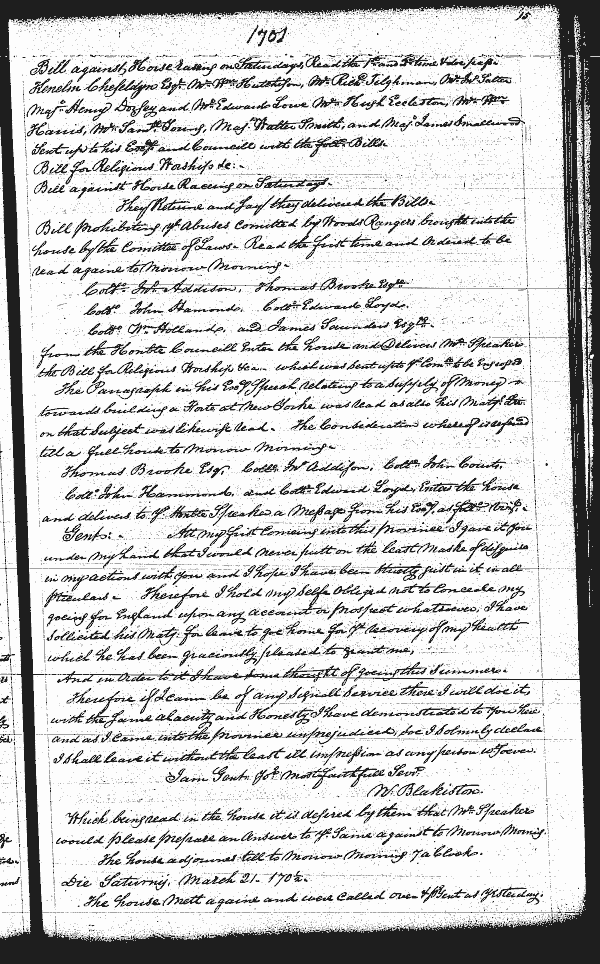 15
1701
Bill against Horse Raceing on Saturdays, Read the 1st and 2d time & doe passe
Kenelm Cheseldyn Esqr. Mr. Wm. Hutchison, Mr. Richd. Tilghman, Mr. Jno.
Majr. Henry Dorsey and Mr. Edward Lowe Mr. Hugh Eccleston, Mr. Wm.
Harris, Mr. Saml. Young, Majr. Walter Smith, and Majr. James Smallwood
Sent up to his Excy. and Councill with the follo. Bills.
Bill for Religious Worship &c:
Bill against Horse Raceing on Saturdays.
They Returne and Say they delivered the Bills.
Bill prohibiting ye. Abuses Comitted by Woods Rangers brought into the
house by the Comittee of Laws. Read the first time and Ordered to be
read againe to Morrow Morning.
Collo. Jno. Addison, Thomas Brooke Esqrs.
Collo. John Hamond, Collo. Edward Loyd,
Collo. Wm. Holland, and James Saunders Esqrs.
from the Honble Councill Enter the house and Delivers Mr. Speaker
the Bill for Religious Worship &ca. which was Sent up to ye. to be Engrossd
The Paragraph in his Excys Speech relating to a Supply of Money
towards building a Forte at New Yorke was read as also his Matys.
on that Subject was likewise read. The Consideration whereof is referred
till a full house to Morrow Morning.
Thomas Brooke Esqr. Collo. Jno. Addison, Collo. John Courts,
Collo. John Hammond, and Collo. Edward Loyd, Enters the house
and delivers to ye. Speaker a Message from his Excy. as follo. vizt.
Gent: At my first Comeing into this Province I gave it you
under my hand that I would never putt on the least Maske of disguise
in my actions with you and I hope I have been Strictly just in it in all
pticulars. Therefore I hold my Selfe Obliged not to Conceale my
goeing for England upon any account or prospect whatsoever, I have
Sollicited his Maty. for leave to goe home for ye. recovery of my health
which he has been graciously pleased to grant me,
And in Order to it I have some thought of goeing this Summer.
Therefore if I cann be of any Signall Service there I will doe it,
with the Same alacrity and Honesty I have demonstrated to you here
and as I came into the Province unprejudiced, soe I Solemnly declare
I shall leave it without the least ill impression as any person wtsoever.
I am Gent. Yor. Most faithfull Servt.
N. Blakiston.
Which being read in the house it is desired by them that Mr. Speaker
would please prepare an Answer to ye. Same against to Morrow Morning.
The house adjournes till to Morrow Morning 7 a Clock.
Die Saturny, March 21. 1701/2.
The house Mett againe and were Called over & psent as Yesterday.